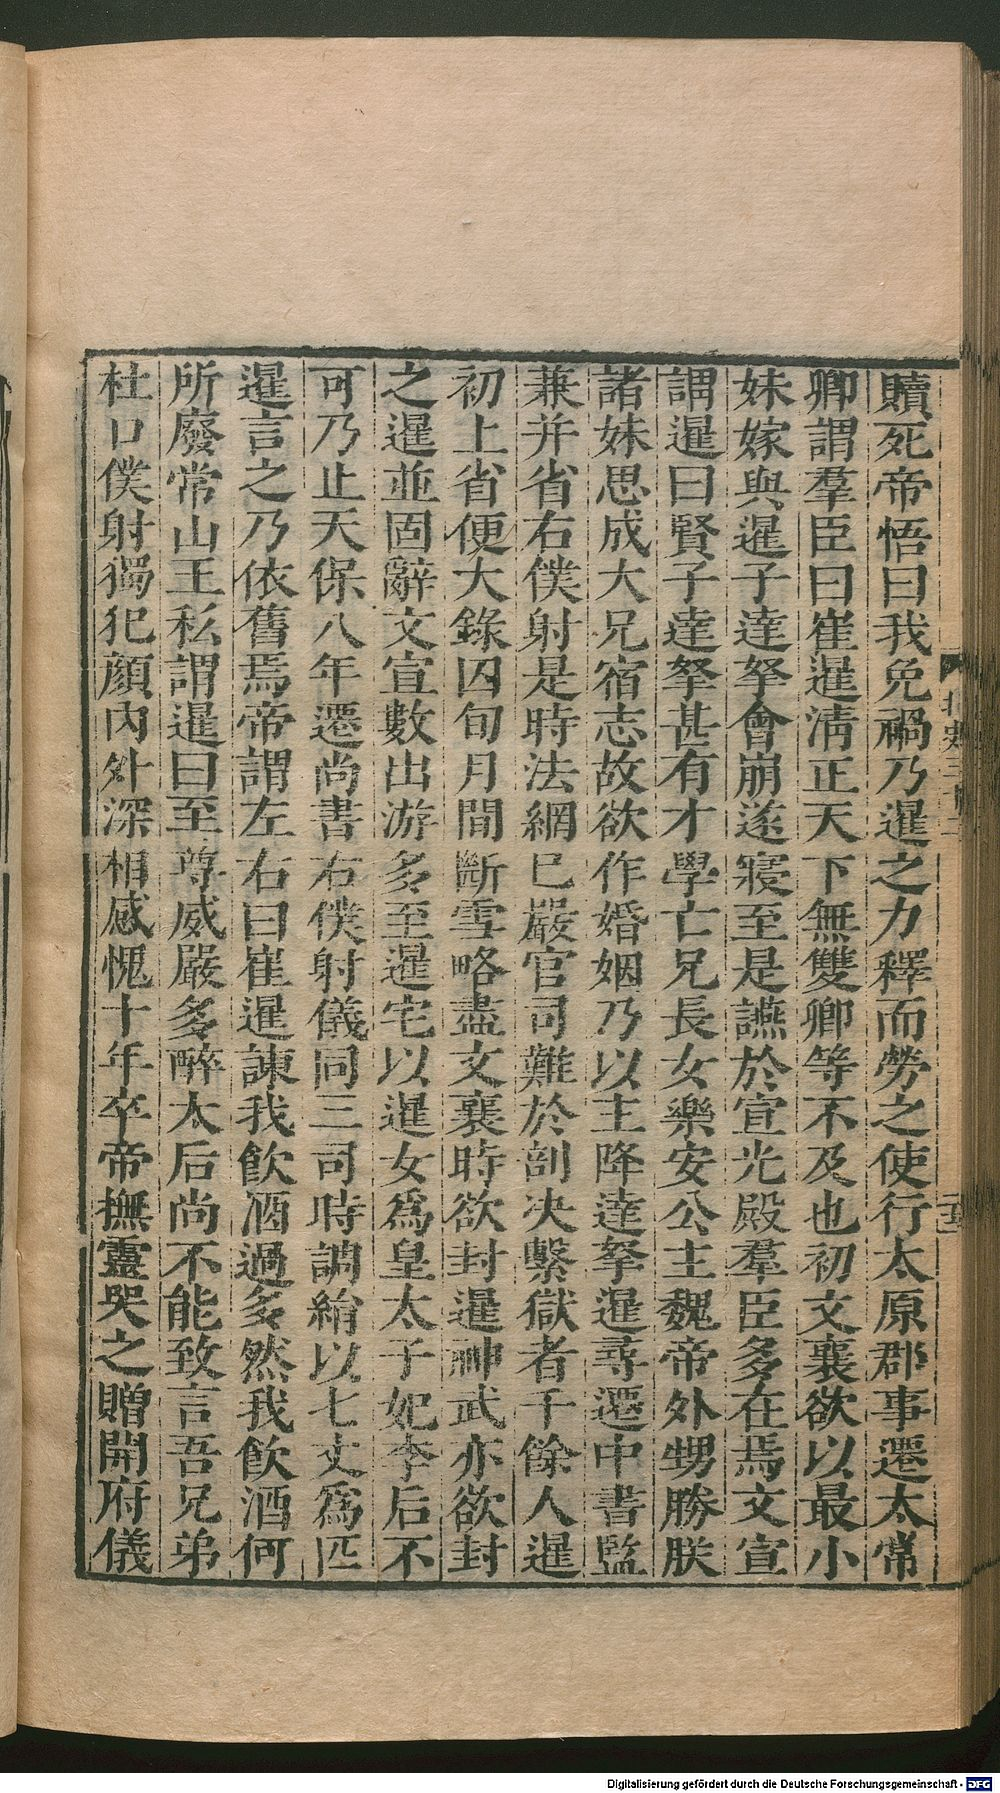 贖死帝悟曰我免禍乃暹之力釋而勞之使行太原郡事遷太常
卿謂羣臣曰崔暹清正天下無雙卿等不及也初文襄欲以最小
妹嫁與暹子達拏會崩遂寢至是讌於宣光殿羣臣多在焉文宣
謂暹曰賢子達拏甚有才學亡兄長女樂安公主魏帝外甥勝朕
諸妹思成大兄宿志故欲作婚姻乃以主降達拏暹尋遷中書監
兼并省右僕射是時法網已嚴官司難於剖決繫獄者千餘人暹
初上省便大錄囚旬月間斷雪略盡文襄時欲封暹神武亦欲封
之暹並固辭文宣數出游多至暹宅以暹女爲皇太子妃李后不
可乃止天保八年遷尚書右僕射儀同三司時調絹以七丈爲匹
暹言之乃依舊焉帝謂左右曰崔暹諫我飲酒過多然我飲酒何
所廢常山王私謂暹曰至尊威嚴多醉太后尚不能致言吾兄弟
杜口僕射獨犯顏內外深相感愧十年卒帝撫靈哭之贈開府儀
Digitalisierung gefördert durch die Deutsche Forschungsgemeinschaft - DFG